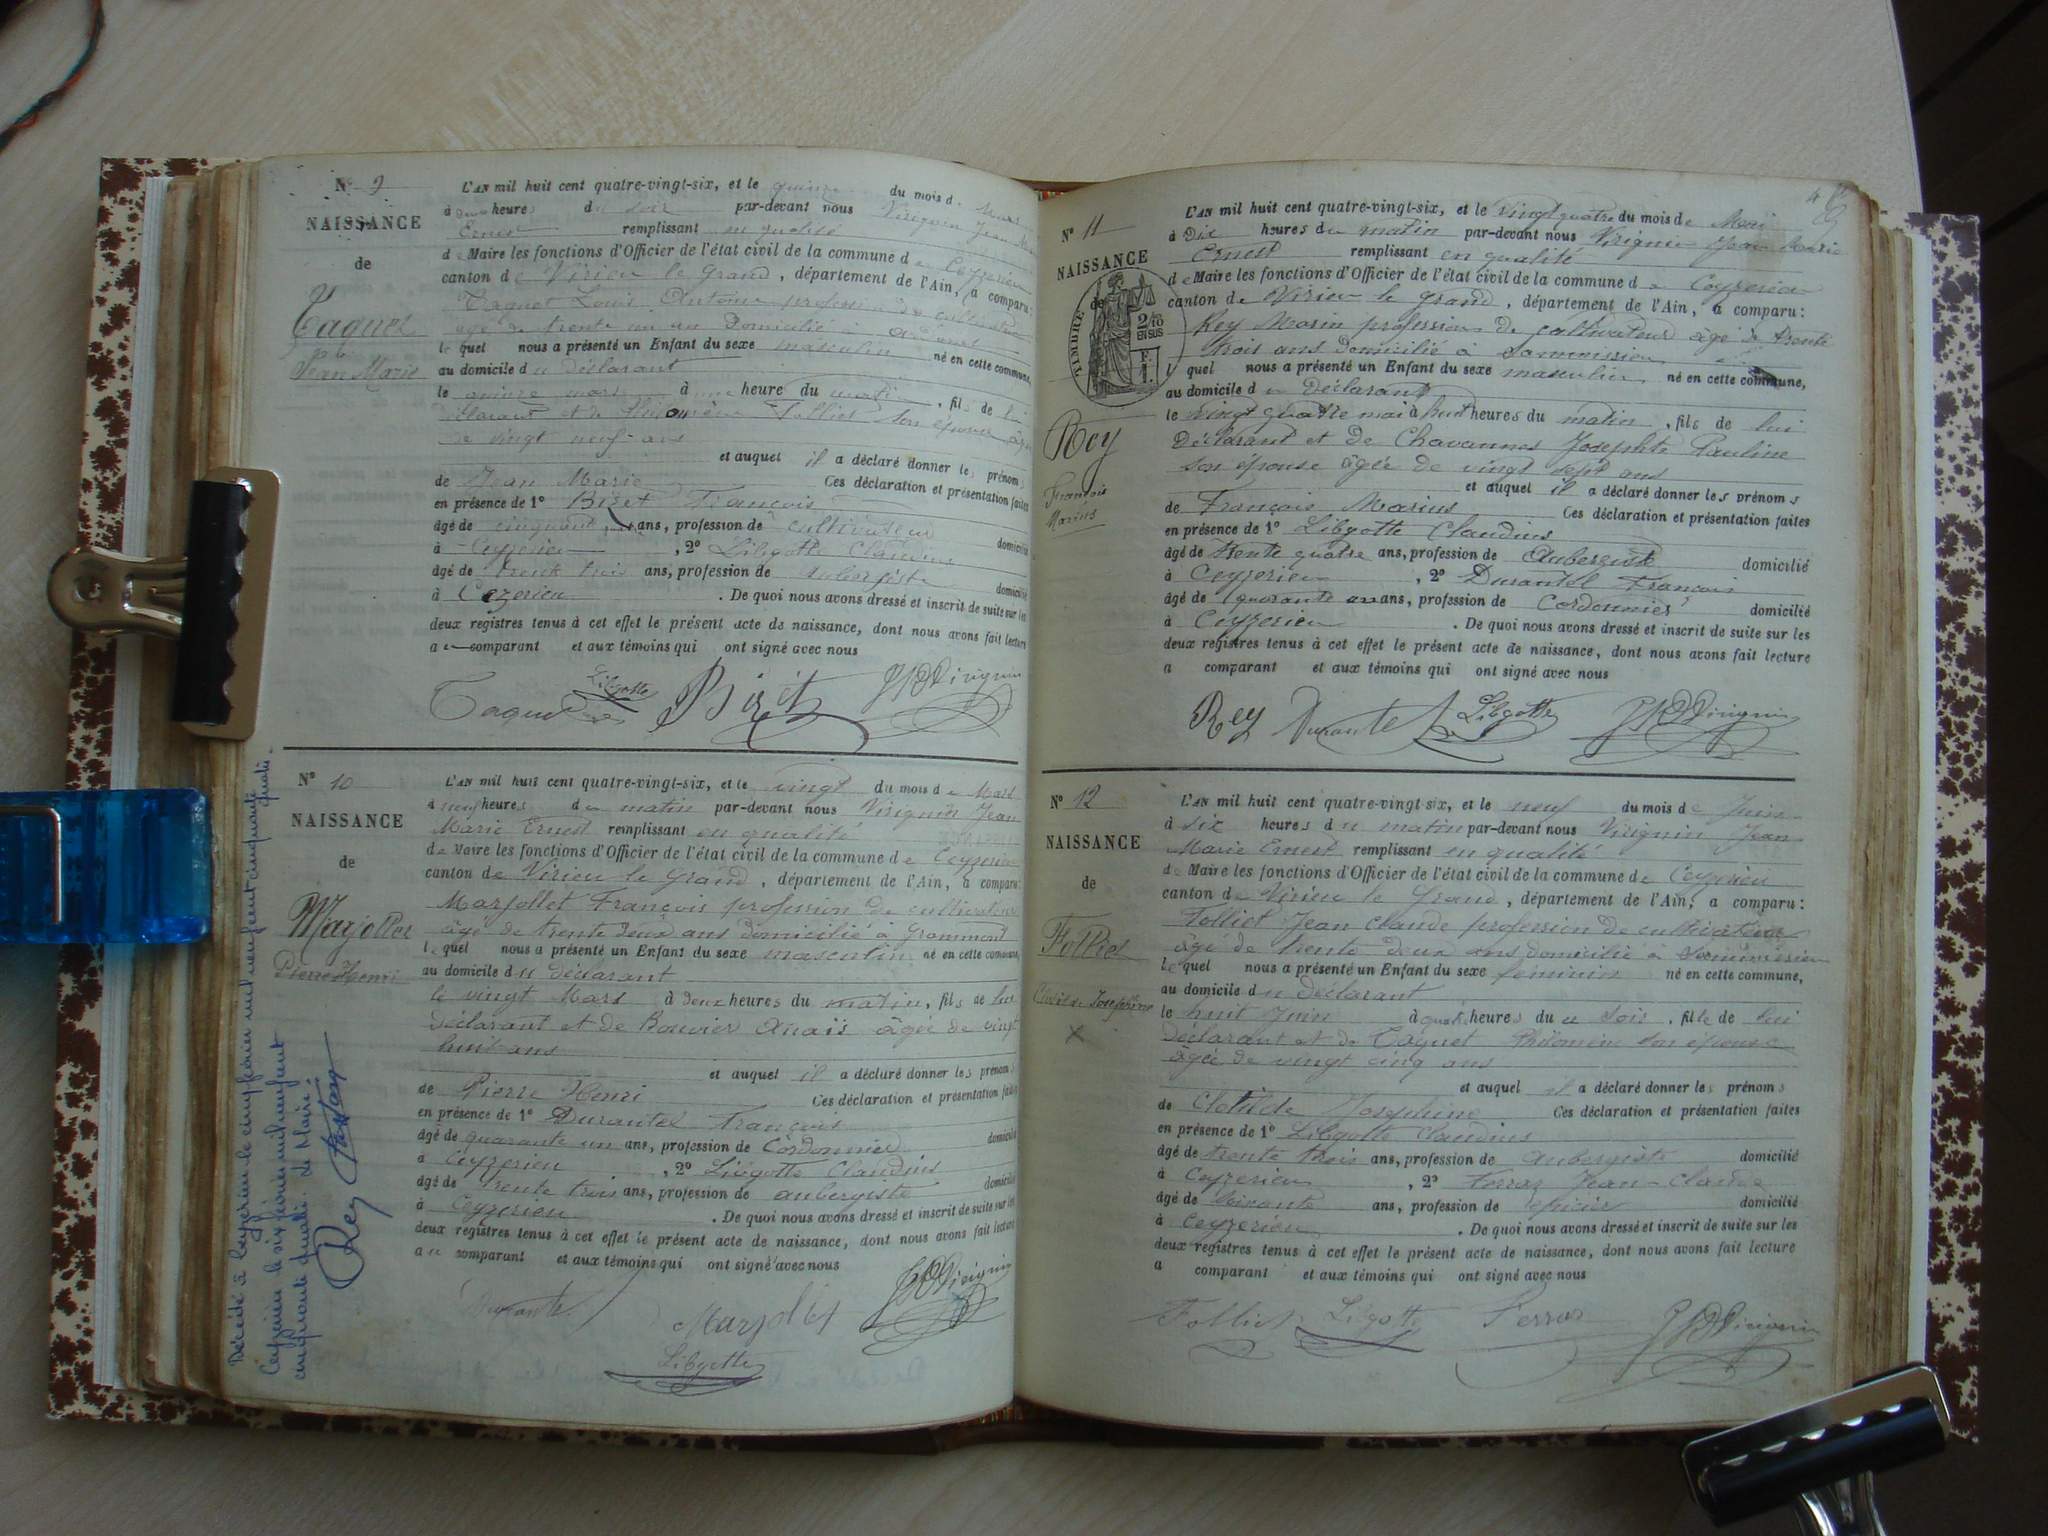 N° 9
NAISSANCE
de
Taquet
Jean Marie
L'AN mil huit cent quatre-vingt-six, et le quinze du mois de Mars
à heures du soir par-devant nous Virignin Jean Marie
Ernest remplissant en qualité
de Maire les fonctions d'Officier de l'état civil de la commune de Ceyzerieu
canton de Virieu le grand, département de l'Ain, a comparu:
Taquet Louis Antoine profession de cultivateur
âgé de trente un ans Domicilié à
lequel nous a présenté un Enfant du sexe masculin né en cette commune,
au domicile du déclarant
le quinze mars à une heure du matin, fils de lui
déclarant et de Philomène Folliet son épouse âgée
de vingt neuf ans
et auquel il a déclaré donner les prénoms
de Jean Marie Ces déclaration et présentation faites
en présence de 1° Bizet François
âgé de cinquante ans, profession de cultivateur domicilié
à Ceyzerieu, 2° Libgotte Claudius
âgé de trente trois ans, profession de aubergiste domicilié
à Ceyzerieu. De quoi nous avons dressé et inscrit de suite sur les
deux registres tenus à cet effet le présent acte de naissance, dont nous avons fait lecture
au comparant et aux témoins qui ont signé avec nous
Taquet Libgotte Bizet JMEVirignin
N° 10
NAISSANCE
de
Marjollet
Pierre Henri
L'AN mil huit cent quatre-vingt-six, et le vingt du mois de Mars
à neuf heures du matin par-devant nous Virignin Jean
Marie Ernest remplissant en qualité
de Maire les fonctions d'Officier de l'état civil de la commune de Ceyzerieu
canton de Virieu le grand, département de l'Ain, a comparu:
Marjollet François profession de cultivateur
âgé de trente deux ans domicilié à Grammont
lequel nous a présenté un Enfant du sexe masculin né en cette commune,
au domicile du déclarant
le vingt Mars à deux heures du matin, fils de lui
déclarant et de Bouvier Anaïs âgée de vingt
huit ans
et auquel il a déclaré donner les prénoms
de Pierre Henri Ces déclaration et présentation faites
en présence de 1° Durantel François
âgé de quarante un ans, profession de Cordonnier domicilié
à Ceyzerieu, 2° Libgotte Claudius
âgé de trente trois ans, profession de aubergiste domicilié
à Ceyzerieu. De quoi nous avons dressé et inscrit de suite sur les
deux registres tenus à cet effet le présent acte de naissance, dont nous avons fait lecture
au comparant et aux témoins qui ont signé avec nous
Durantel Marjollet JMEVirignin
Libgotte
Décédé à Ceyzerieu le cinq février mil neuf cent cinquante quatre.
Ceyzerieu le six février mil neuf cent
cinquante quatre. Le Maire:
Rey
N° 11
NAISSANCE
de
TIMBRE
2/10
EN SUS
Rey
François
Marius
L'AN mil huit cent quatre-vingt-six, et le vingt quatre du mois de Mai
à Dix heures du matin par-devant nous Virignin Jean Marie
Ernest remplissant en qualité
de Maire les fonctions d'Officier de l'état civil de la commune de Ceyzerieu
canton de Virieu le grand, département de l'Ain, a comparu:
Rey Marin profession de cultivateur âgé de trente
trois ans domicilié à
lequel nous a présenté un Enfant du sexe masculin né en cette commune,
au domicile du Déclarant
le vingt quatre mai à huit heures du matin, fils de lui
Déclarant et de Chavannes Josephte Pauline
son épouse âgée de vingt sept ans
et auquel il a déclaré donner les prénoms
de François Marius Ces déclaration et présentation faites
en présence de 1° Libgotte Claudius
âgé de trente quatre ans, profession de Aubergiste domicilié
à Ceyzerieu, 2° Durantel François
âgé de quarante un ans, profession de Cordonnier domicilié
à Ceyzerieu. De quoi nous avons dressé et inscrit de suite sur les
deux registres tenus à cet effet le présent acte de naissance, dont nous avons fait lecture
a comparant et aux témoins qui ont signé avec nous
Rey Durantel Libgotte JMEVirignin
N° 12
NAISSANCE
de
Folliet
Clotilde Joséphine
L'AN mil huit cent quatre-vingt-six, et le neuf du mois de Juin
à six heures du matin par-devant nous Virignin Jean
Marie Ernest remplissant en qualité
de Maire les fonctions d'Officier de l'état civil de la commune de Ceyzerieu
canton de Virieu le Grand, département de l'Ain, a comparu:
Folliet Jean Claude profession de cultivateur
âgé de trente deux ans domicilié à
lequel nous a présenté un Enfant du sexe féminin né en cette commune,
au domicile du déclarant
le huit Juin à quatre heures du soir, fille de lui
déclarant et de Taquet Philomène son épouse
âgée de vingt cinq ans
et auquel il a déclaré donner les prénoms
de Clotilde Joséphine Ces déclaration et présentation faites
en présence de 1° Libgotte Claudius
âgé de trente trois ans, profession de aubergiste domicilié
à Ceyzerieu, 2° Ferraz Jean-Claude
âgé de soixante ans, profession de épicier domicilié
à Ceyzerieu. De quoi nous avons dressé et inscrit de suite sur les
deux registres tenus à cet effet le présent acte de naissance, dont nous avons fait lecture
a comparant et aux témoins qui ont signé avec nous
Folliet Libgotte Ferraz JMEVirignin